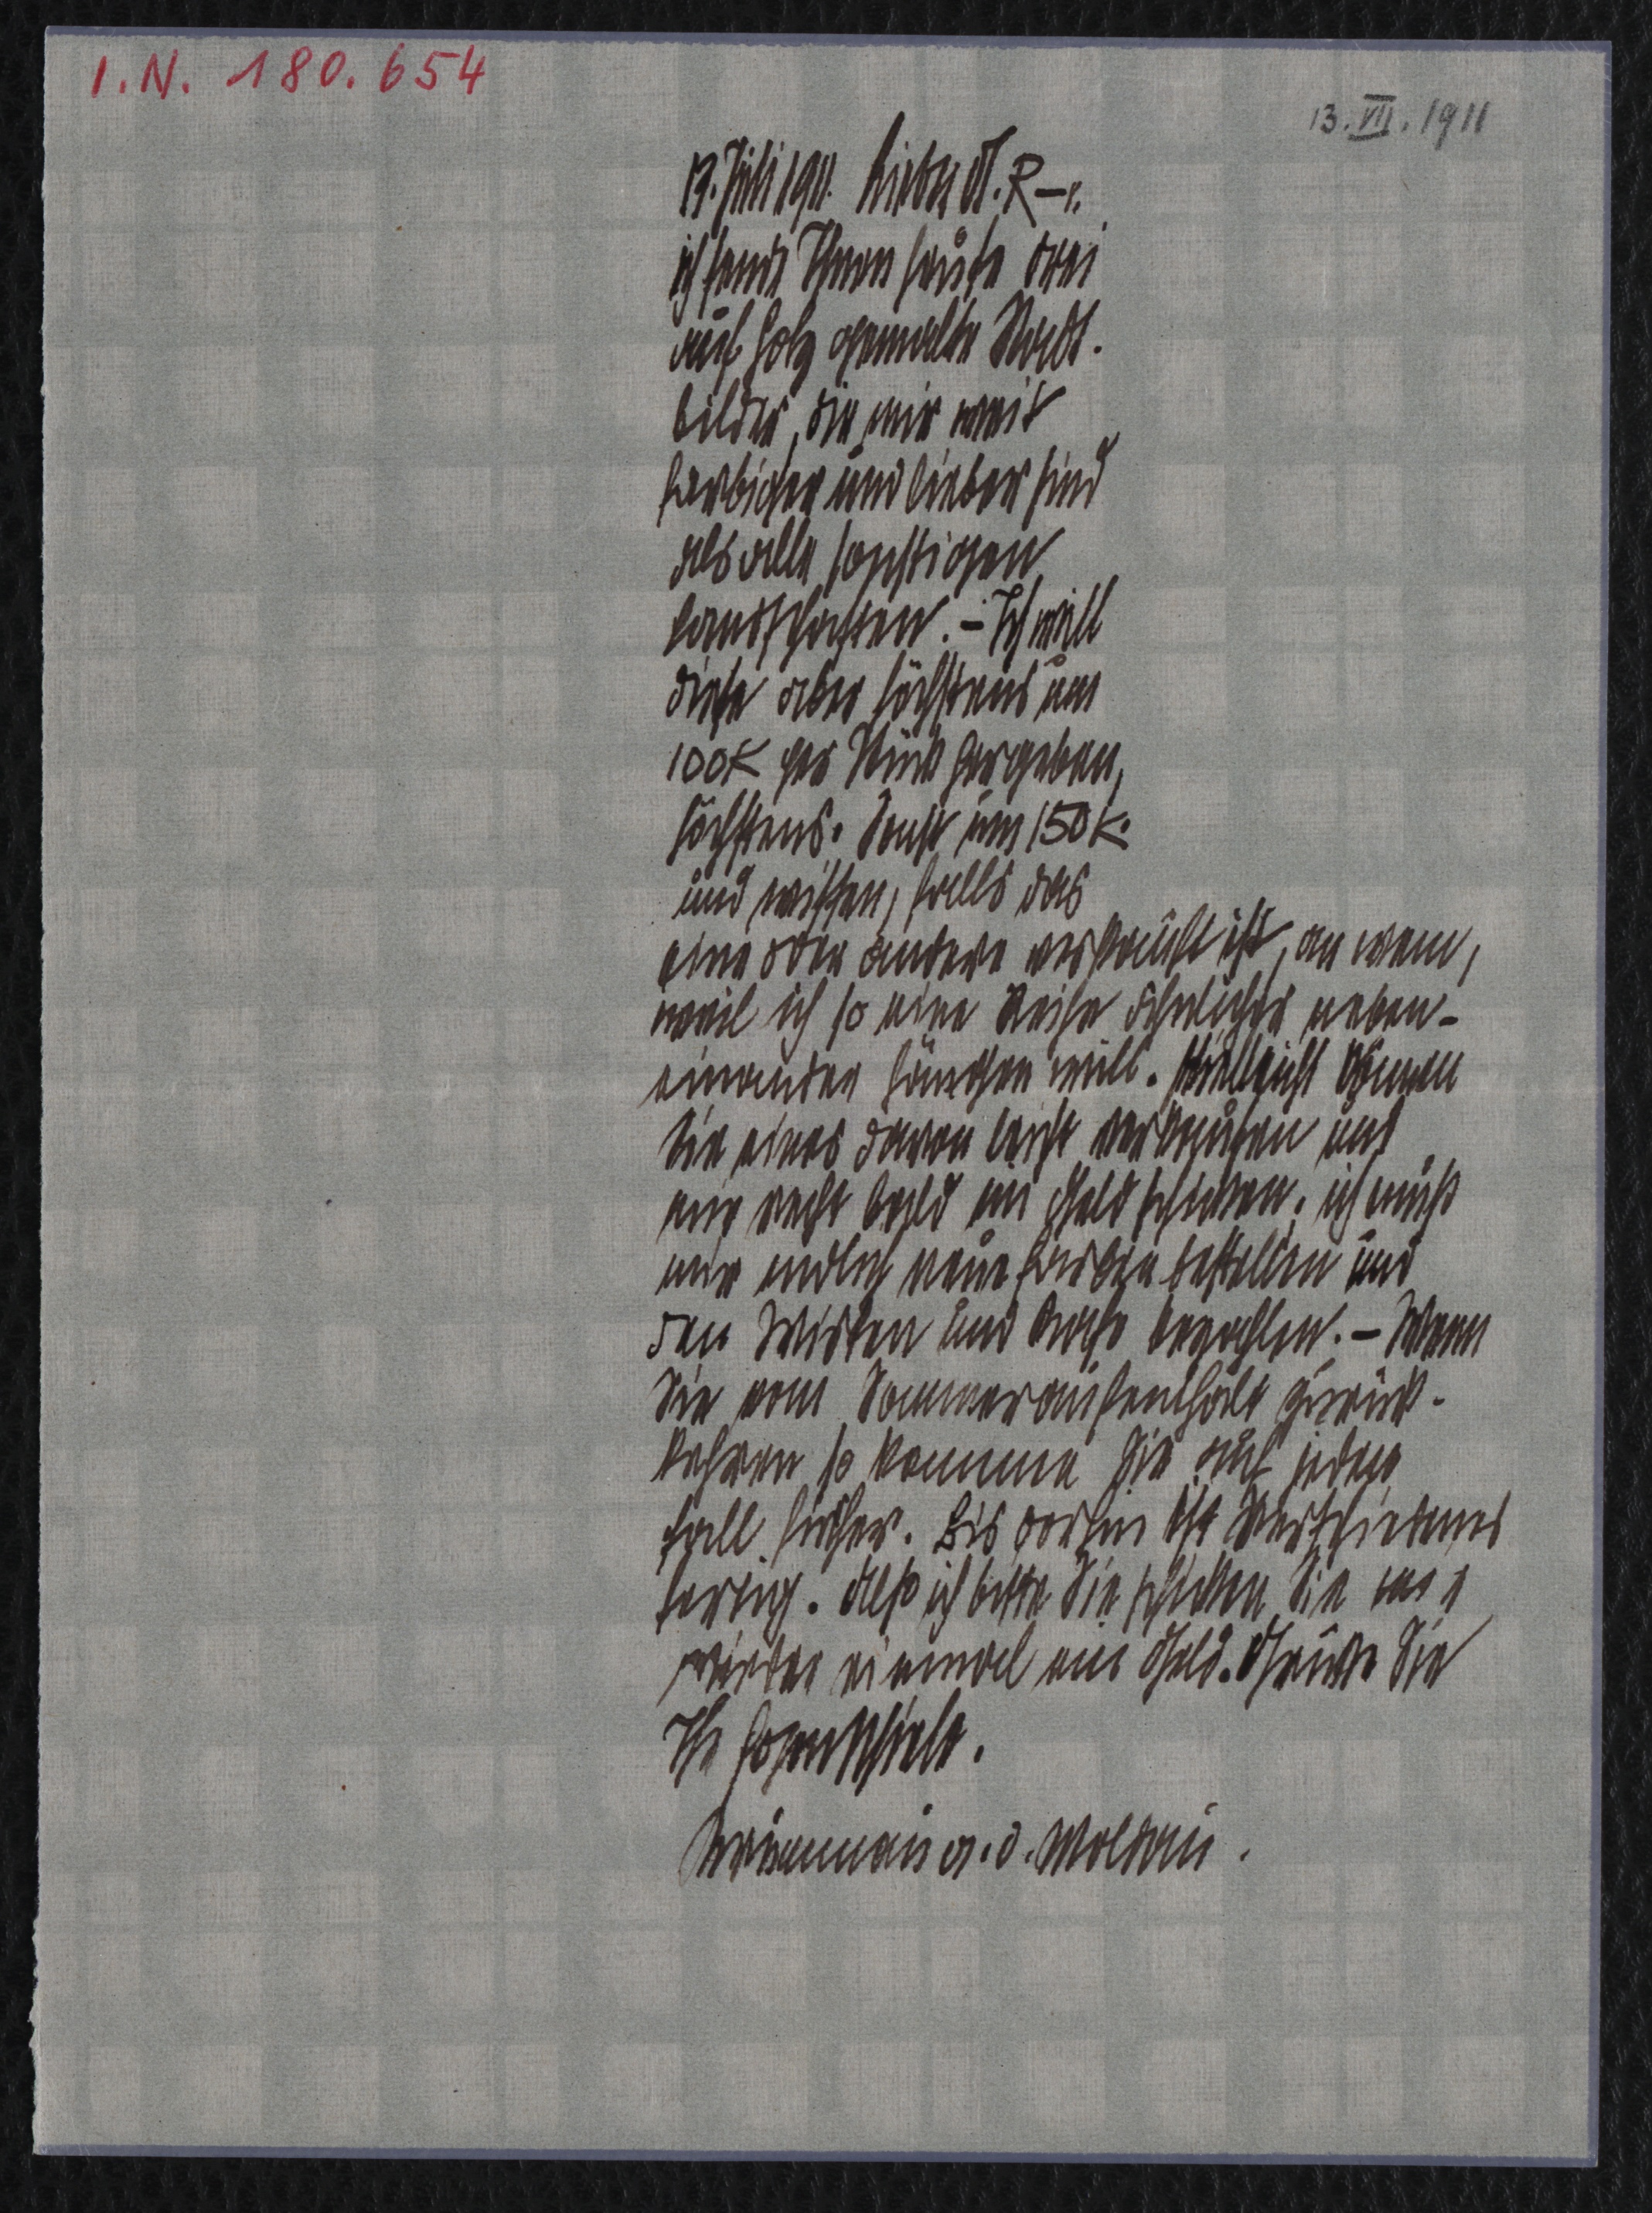 I.N. 180.654
13.VII.1911
13. Juli 1911. Lieber A. R–r.
ich sende Ihnen heute drei
auf Holz gemalte Stadt-
bilder, die mir weit
farbiger und lieber sind
als alle sonstigen
Landschaften. – Ich will
diese aber höchstens um
100K per Stück hergeben,
höchstens. Sonst um 150K.
und wissen, falls das
eine oder andere verkauft ist, an wem,
weil ich so eine Reihe ähnlicher neben-
einander hängen will. Vielleicht können
Sie eines davon leicht verkaufen und
mir recht bald ein Geld schicken, ich muß
mir endlich neue Farben bestellen und
den Wirten und bezahlen. – Wenn
Sie vom Sommeraufenthalt zurück-
kehren so kommen Sie auf jeden
Fall hieher. Bis dorthin ist Verschiedenes
fertig. Also ich bitte Sie schicken Sie
wieder einmal ein Geld. Grüße Sie
Ihr Egon Schiele.
Krummau a. d. Moldau.